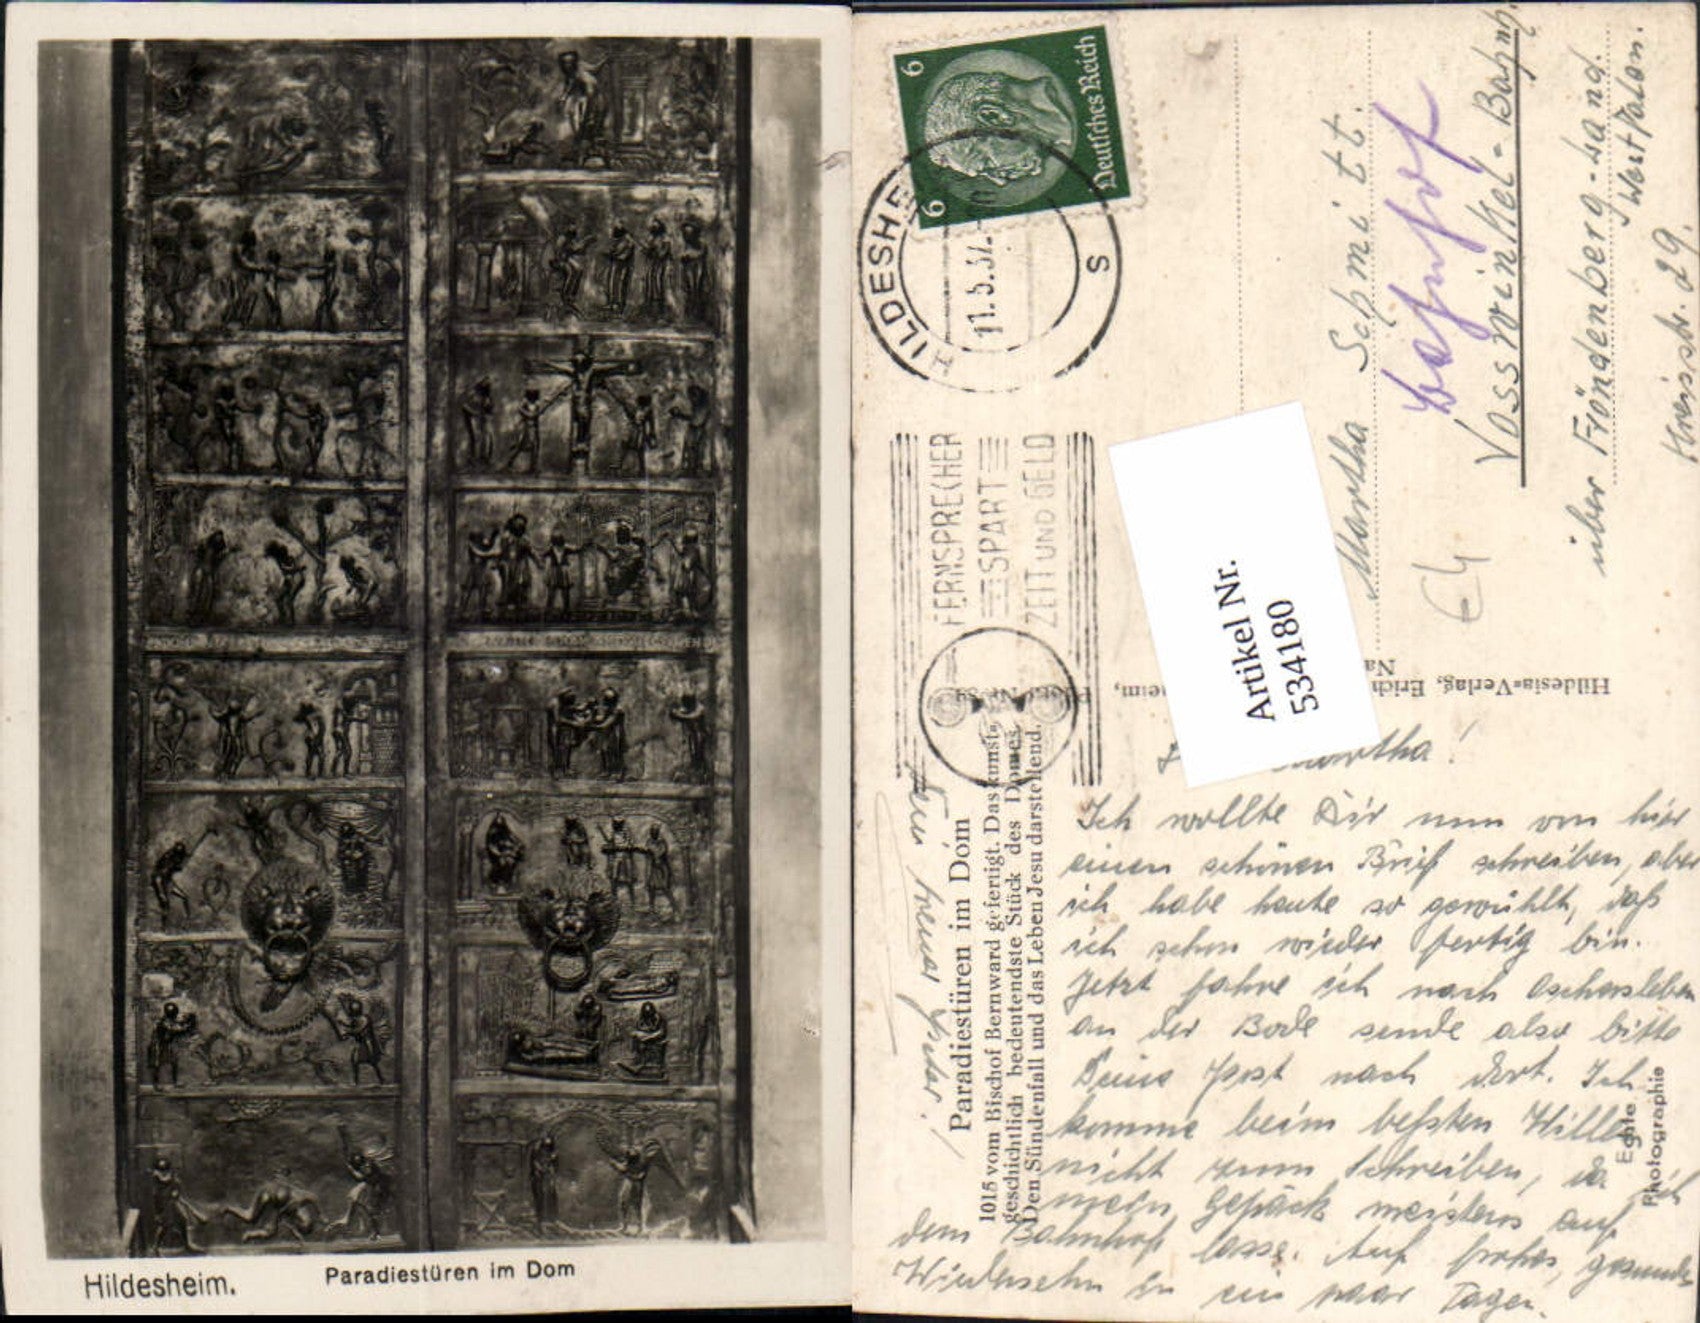 Hildesheim.
Paradiestüren im Dom
6
6
Deutsches Reich
HILDESHE
11.5.37.
s
FERNSPRECHER
SPART
ZEIT UND GELD
Artikel Nr.
534180
Martha Schmitt.
Bahnhof
Vosswinkel-Bahnh.
über Fröndenberg-Land.
Westfalen.
Kreisstr. 29.
Hildesia-Verlag, Erich
Na
eim,
Paradiestüren im Dom
1015 vom Bischof Bernward gefertigt. Das kunst-
geschichtlich bedeutendste Stück des Domes.
Den Sündenfall und das Leben Jesu darstellend.
Echte
Photographie
Martha!
Ich wollte Dir nun von hier
einen schönen Brief schreiben, aber
ich habe heute so gewühlt, daß
ich schon wieder fertig bin.
Jetzt fahre ich nach Oschersleben
an der Bode sende also bitte
Deine Post nach dort. Ich
komme beim besten Wille
nicht zum Schreiben, da ich
mein Gepäck meistens auf
dem Bahnhof lasse. Auf frohes, gesundes
Wiedersehn in ein paar Tagen.
Dein treuer